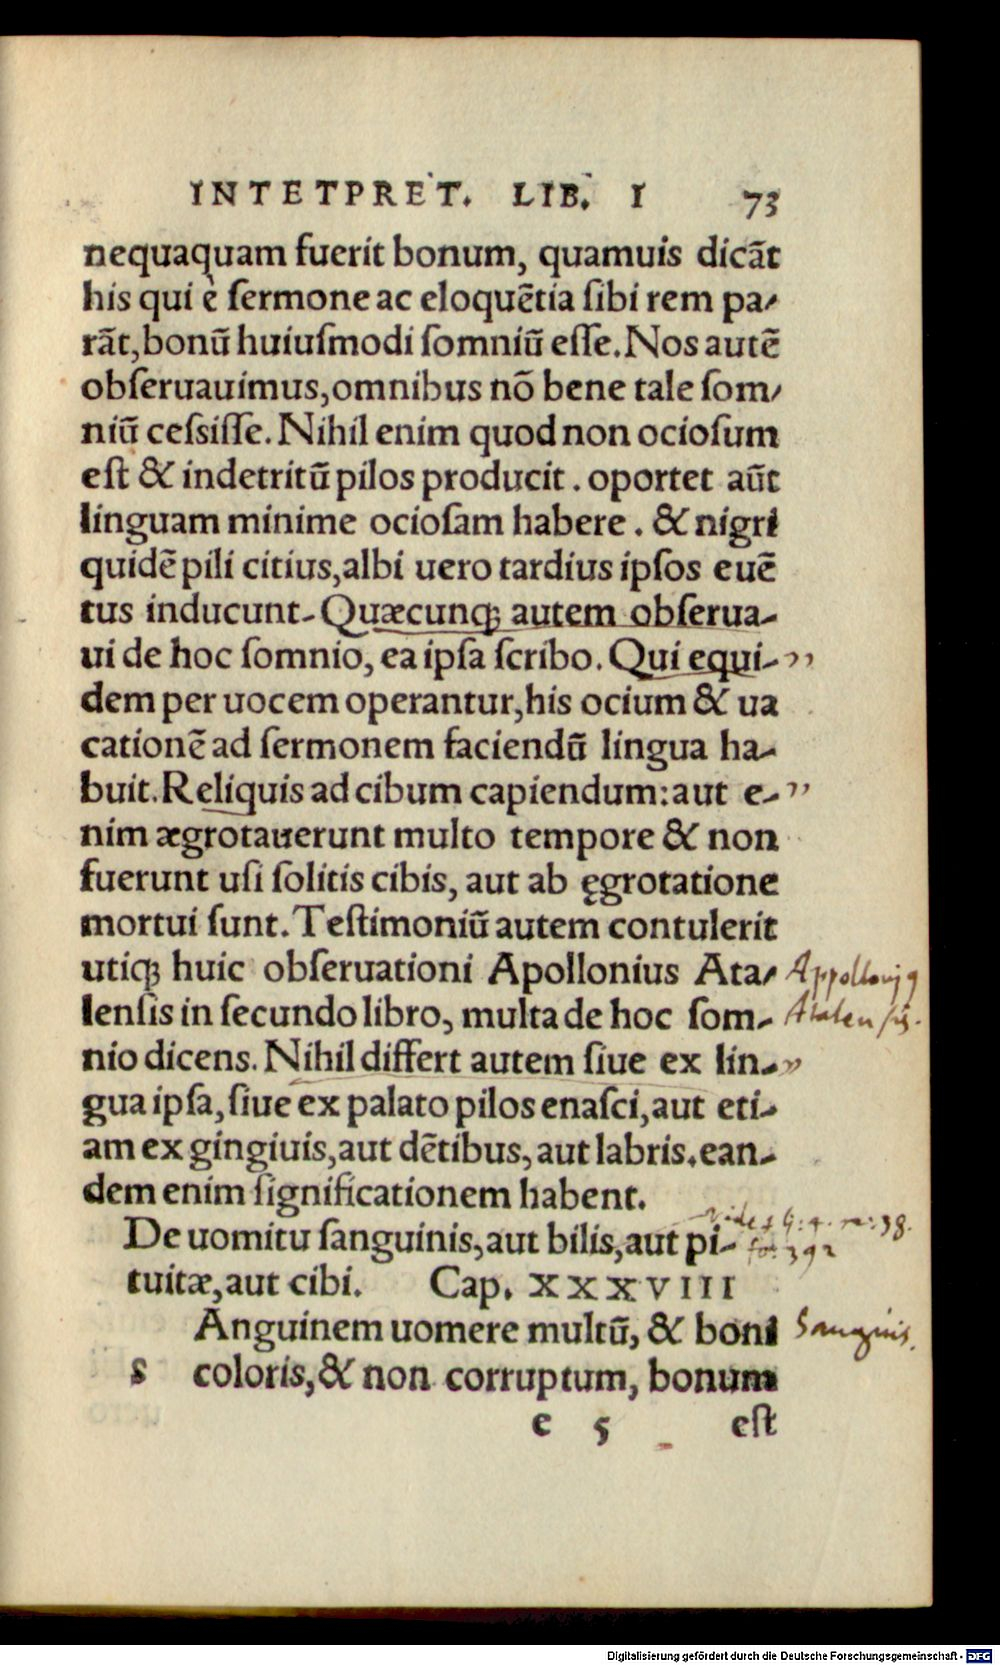 INTETPRET. LIB. I 73
nequaquam fuerit bonum, quamuis dicãt
his qui è sermone ac eloquẽtia sibi rem pa-
rãt, bonũ huiuſmodi ſomniũ eſſe. Nos autẽ
obſeruauimus, omnibus nõ bene tale ſom-
niũ ceſsiſſe. Nihil enim quod non ocioſum
eſt & indetritũ pilos producit. oportet aũt
linguam minime ocioſam habere. & nigri
quidẽ pili citius, albi uero tardius ipſos euẽ
tus inducunt. Quæcunqꝫ autem obſerua-
ui de hoc ſomnio, ea ipſa ſcribo. Qui equi- ,,
dem per uocem operantur, his ocium & ua
cationẽ ad ſermonem faciendũ lingua ha-
buit. Reliquis ad cibum capiendum: aut e- ,,
nim ægrotauerunt multo tempore & non
fuerunt uſi ſolitis cibis, aut ab ęgrotatione
mortui ſunt. Teſtimoniũ autem contulerit
utiqꝫ huic obſeruationi Apollonius Ata-
lenſis in ſecundo libro, multa de hoc ſom-
Appollonius
Atalensis.
nio dicens. Nihil differt autem ſiue ex lin- ,,
gua ipſa, ſiue ex palato pilos enaſci, aut eti-
am ex gingiuis, aut dẽtibus, aut labris. ean-
dem enim ſignificationem habent.
De uomitu ſanguinis, aut bilis, aut pi-
tuitæ, aut cibi. Cap. XXXVIII
fo: 392
Anguinem uomere multũ, & boni
Sanguis.
S coloris, & non corruptum, bonum
e 5 eſt
Digitalisierung gefördert durch die Deutsche Forschungsgemeinschaft - DFG